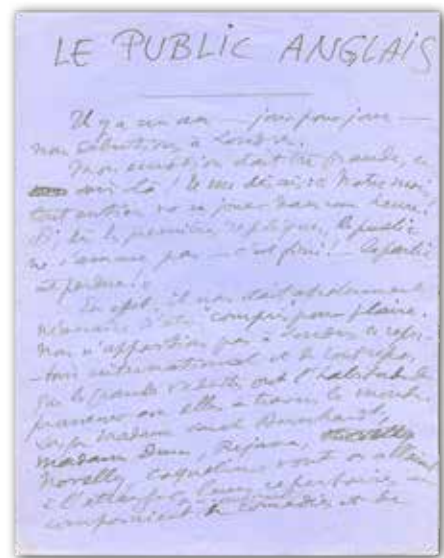 LE PUBLIC ANGLAIS
Il y a un an — jour pour jour —
nous débutions à Londres.
Mon émotion était très grande, ce
soir là! Je me disais: Notre
tout entier va se jouer dans une heure!
Si, dès la première réplique, le public
ne s'amuse pas — c'est fini! La partie
est perdue!
En effet, il nous était absolument
nécessaire d'être compris pour plaire.
Nous n'apportions pas à Londres ce réper-
-toire international et de tout repos
que les grandes vedettes ont l'habitude de
promener avec elles à travers le monde.
Lorsque Madame Sarah Bernhardt,
Madame Duse, Réjane,
Novelli, Coquelin vont ou allaient
à l'étranger, leur répertoire se
composaient de comédies et de